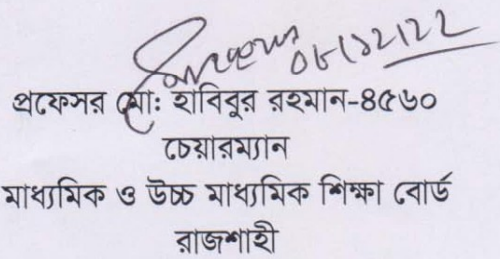 ০৮/১২/২২
প্রফেসর মো: হাবিবুর রহমান-৪৫৬০
চেয়ারম্যান
মাধ্যমিক ও উচ্চ মাধ্যমিক শিক্ষা বোর্ড
রাজশাহী